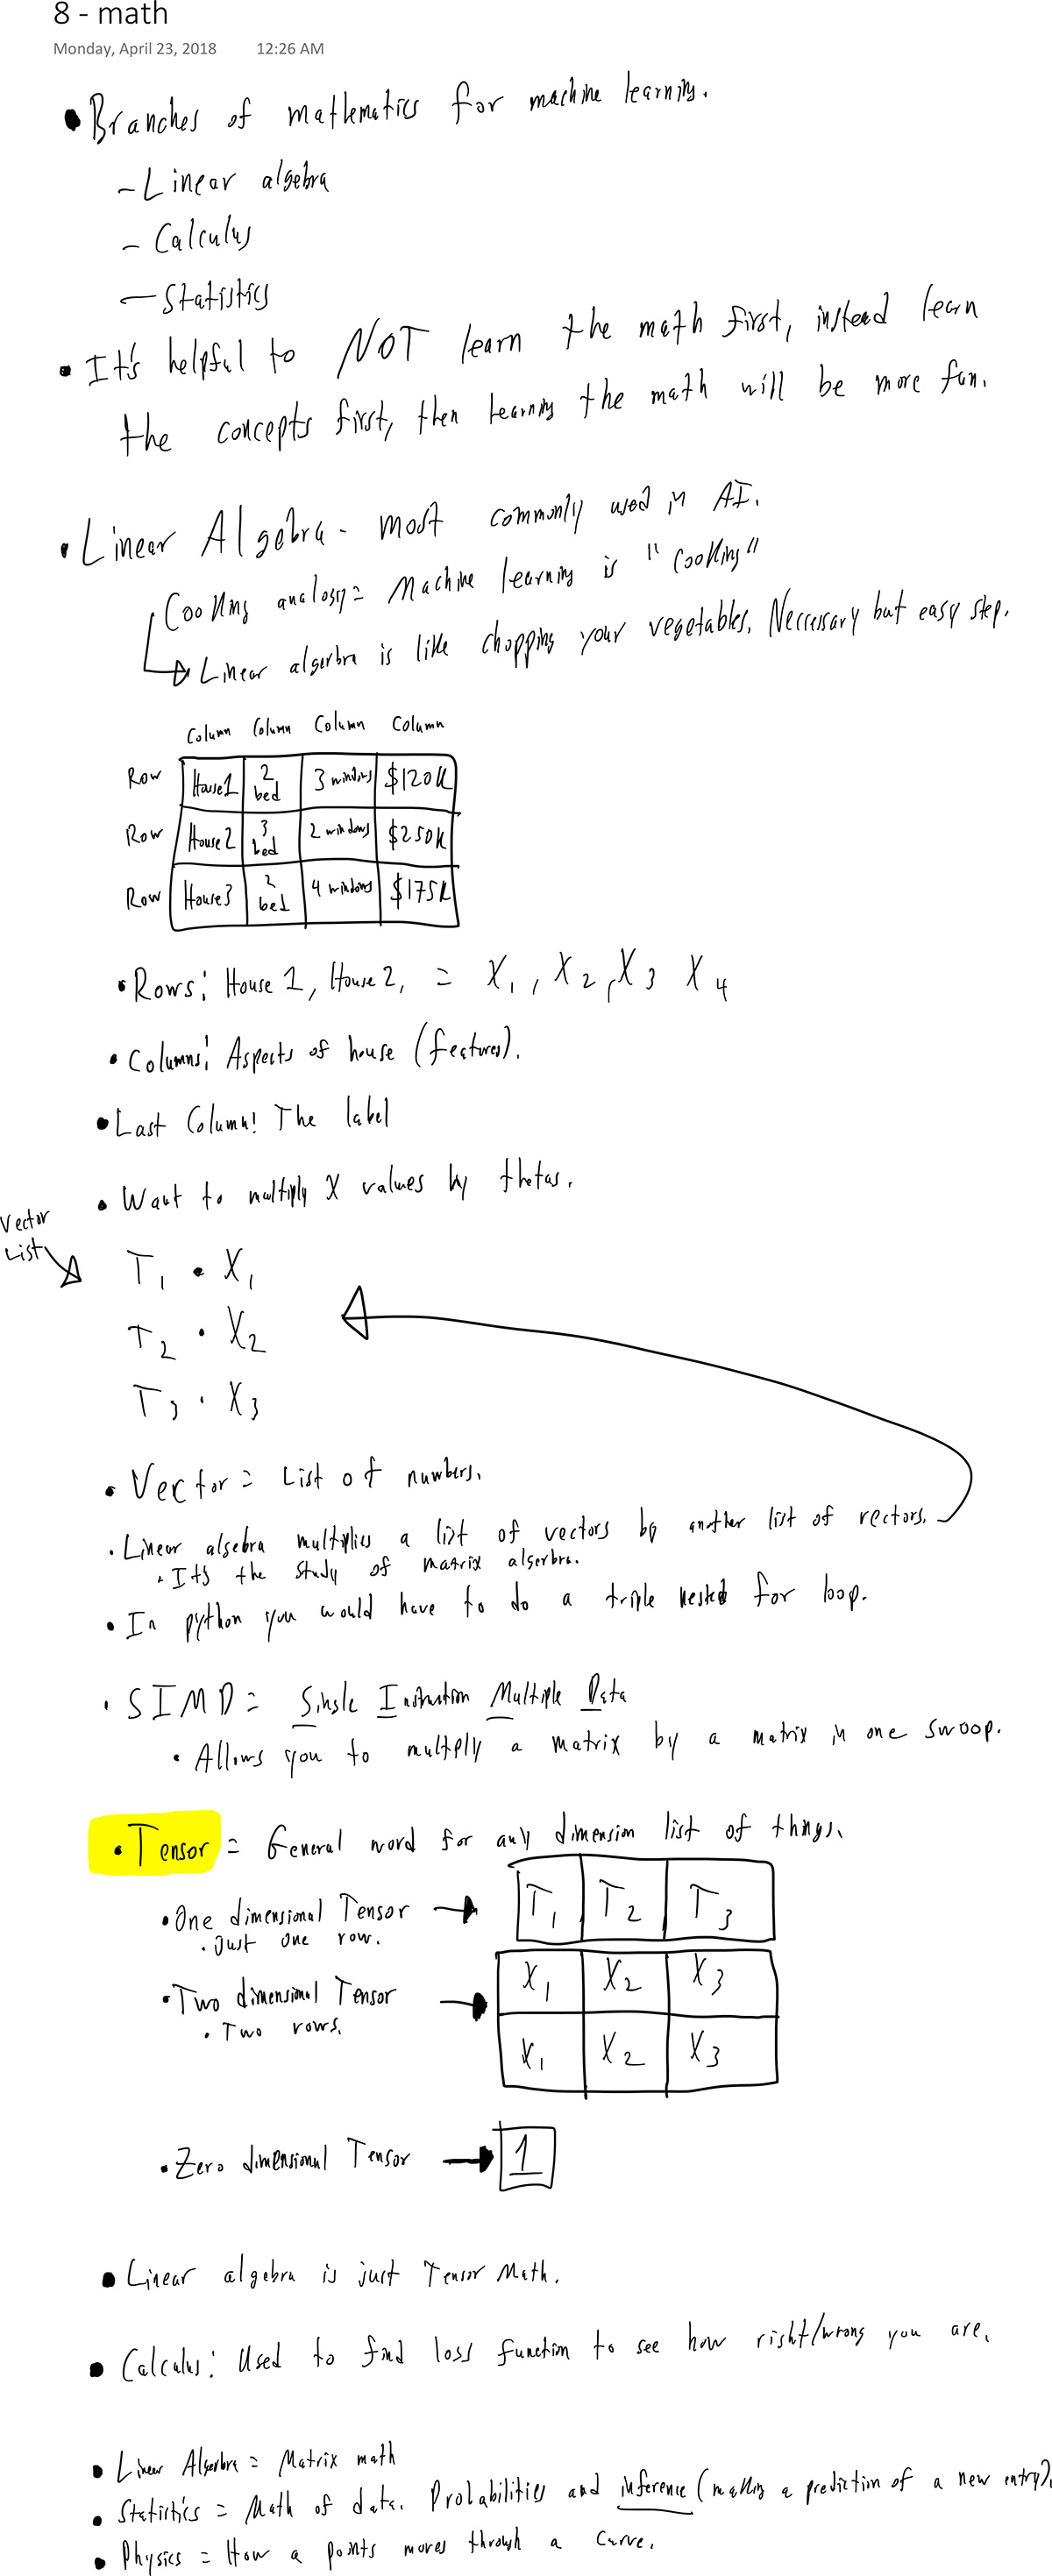 8 - math
Monday, April 23, 2018 12:26 AM
• Branches of mathematics for machine learning.
- Linear algebra
- Calculus
- Statistics
• It's helpful to NOT learn the math first, instead learn
the concepts first, then learning the math will be more fun.
• Linear Algebra - most commonly used in AI.
Cooking analogy = Machine learning is "Cooking"
Linear algerbra is like chopping your vegetables. Neccessary but easy step.
Column Column Column Column
Row House1 2 bed 3 windows $120K
Row House2 3 bed 2 windows $250K
Row House3 2 bed 4 windows $175K
• Rows: House 1, House 2, = X1, X2, X3 X4
• Columns: Aspects of house (features).
• Last Column: The label
• Want to multiply X values by thetas.
Vector
List
T1 • X1
T2 • X2
T3 • X3
• Vector = List of numbers.
• Linear algebra multiplies a list of vectors by another list of vectors.
• It's the study of matrix algerbra.
• In python you would have to do a triple nested for loop.
• SIMD = Single Instruction Multiple Data
• Allows you to multply a matrix by a matrix in one swoop.
• Tensor = General word for any dimension list of things.
• One dimensional Tensor T1 T2 T3
• Just one row.
• Two dimensional Tensor X1 X2 X3
• Two rows. X1 X2 X3
• Zero dimensional Tensor 1
• Linear algebra is just Tensor Math.
• Calculus: Used to find loss function to see how right/wrong you are.
• Linear Algerbra = Matrix math
• Statistics = Math of data. Probabilities and inference (making a prediction of a new entry).
• Physics = How a points moves through a curve.